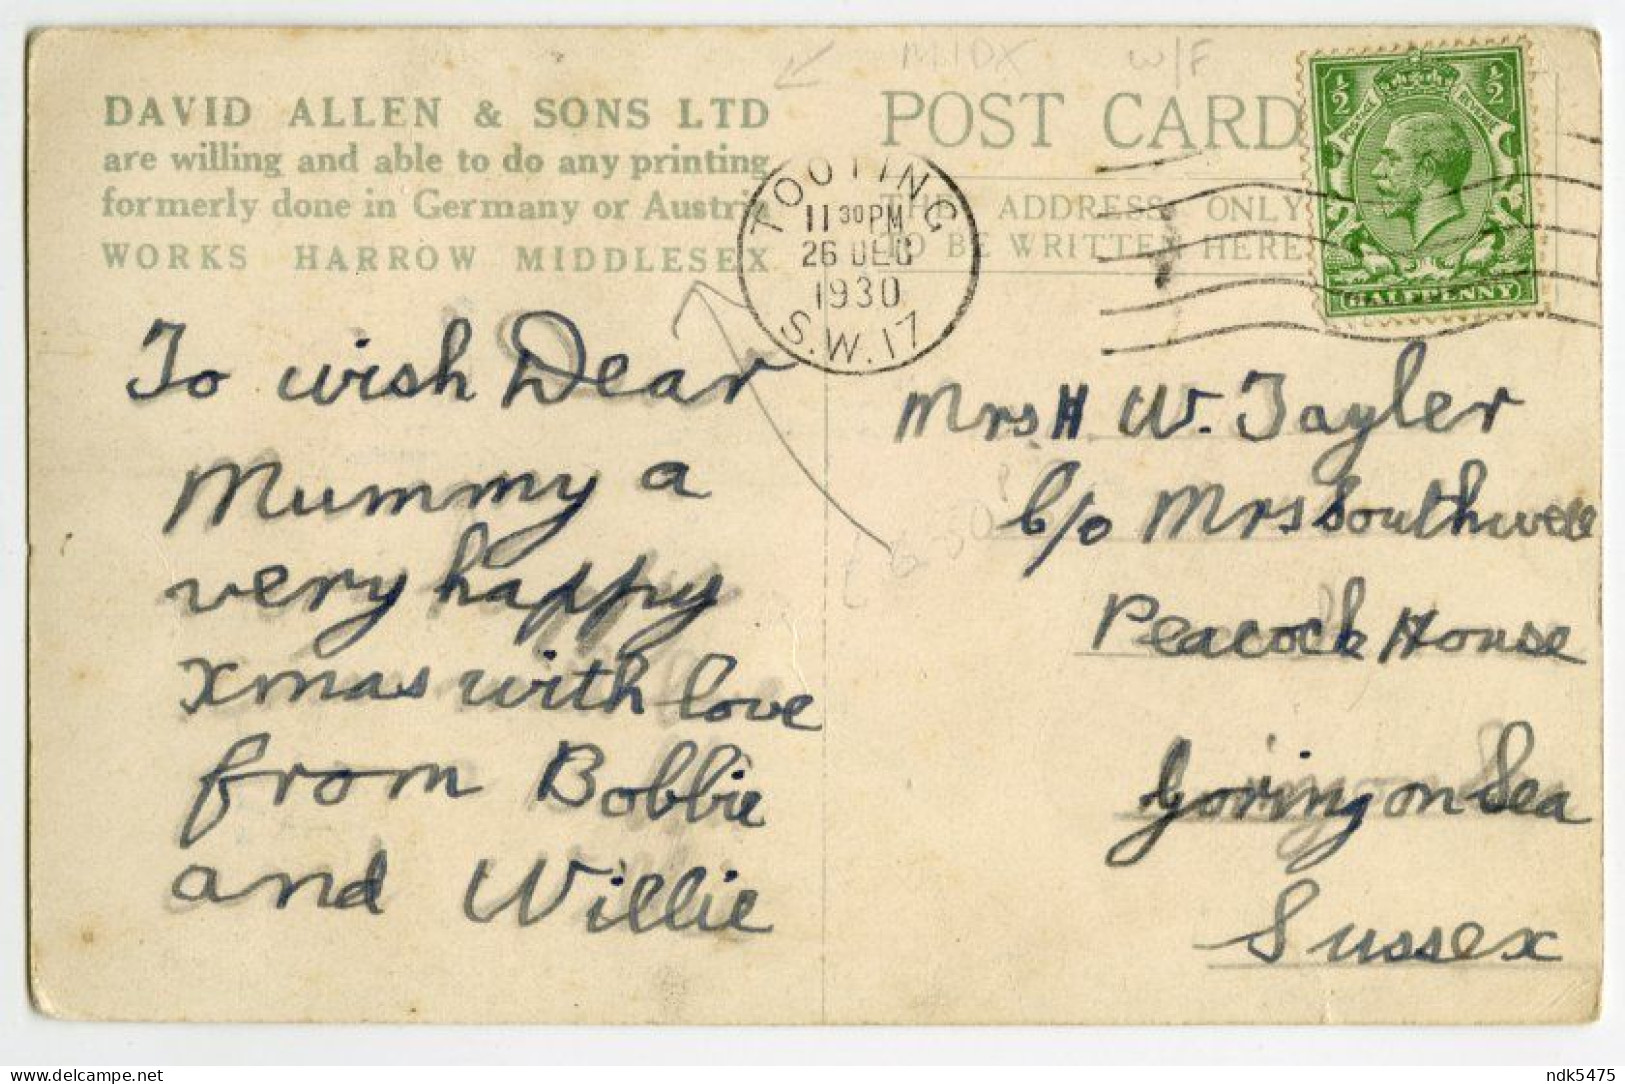 MIDX W/F
DAVID ALLEN & SONS LTD
are willing and able to do any printing
formerly done in Germany or Austria
WORKS HARROW MIDDLESEX
POST CARD
THE ADDRESS ONLY
TO BE WRITTEN HERE
TOOTING
11 30 PM
26 DEC
1930
S.W.17
½ ½
POSTAGE REVENUE
HALFPENNY
To wish Dear
Mummy a
very happy
Xmas with love
from Bobbie
and Willie
Mrs H W. Tayler
C/o Mrs Southwell
Peacock House
Goring on Sea
Sussex
delcampe.net
ndk5475